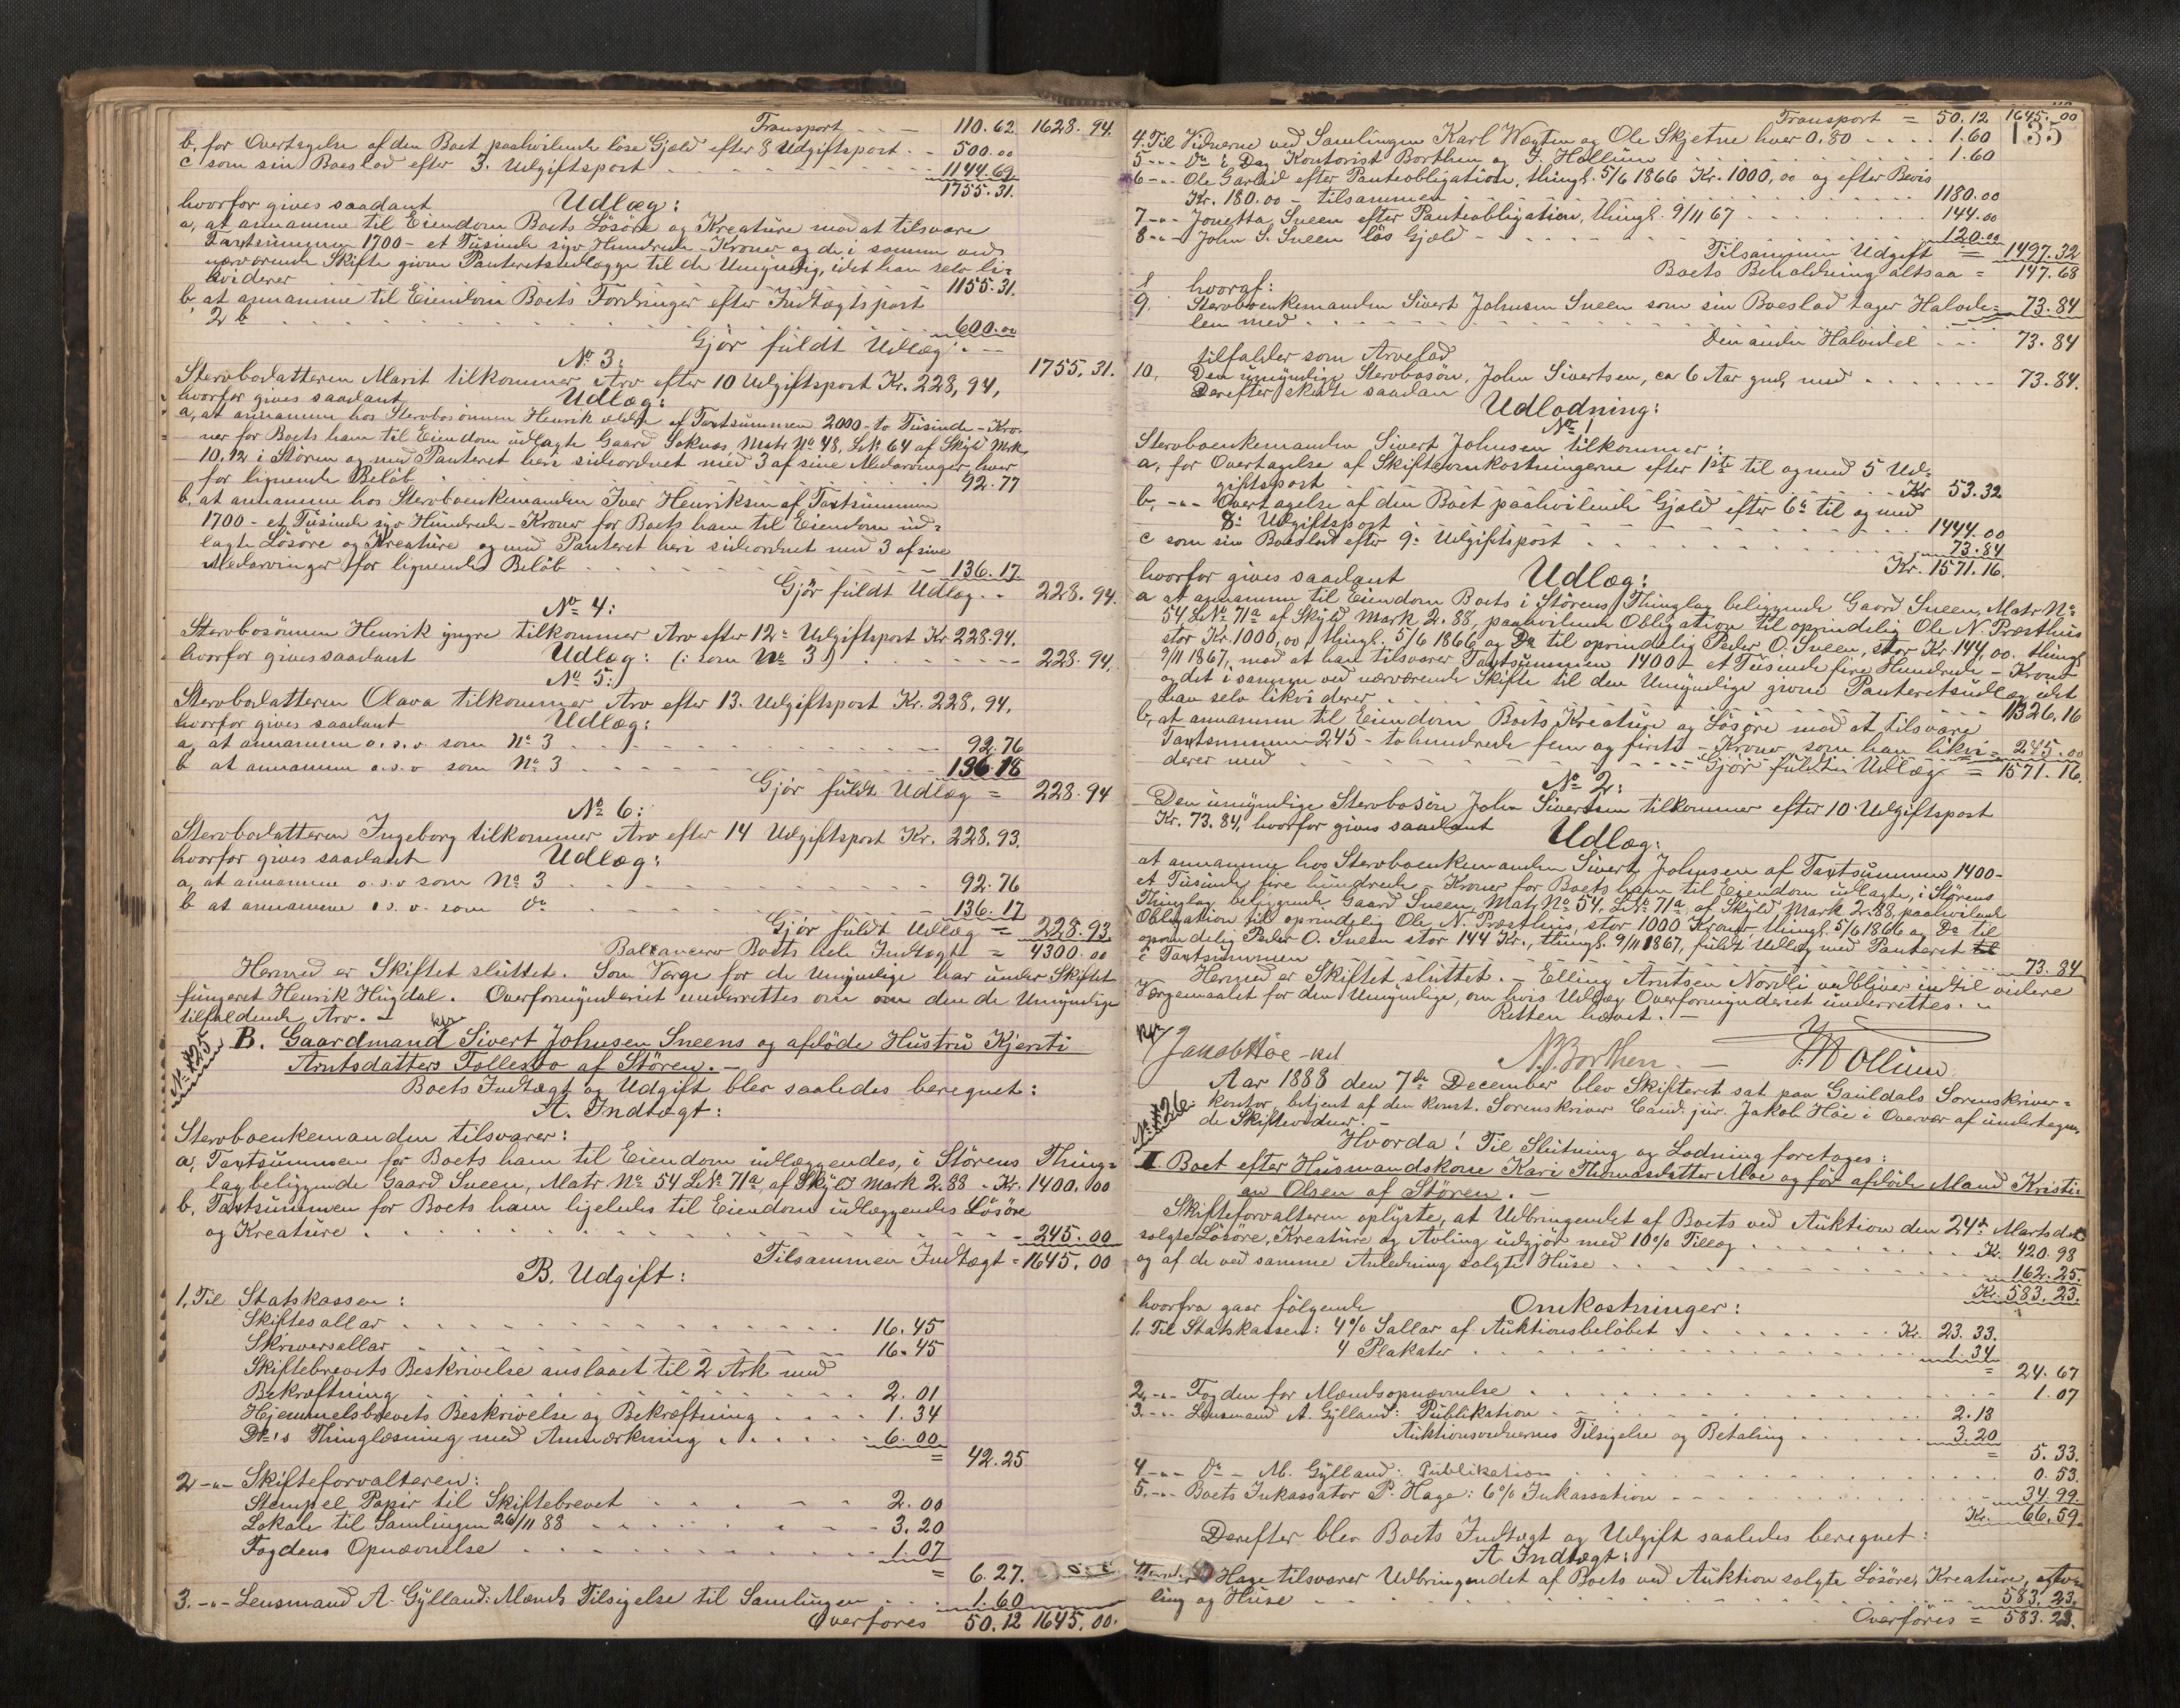 Transport - - - 110.62. 1628.94.
b, for Overtagelse af den Boet paahvilende löse Gjæld efter 8 Udgiftspost. - 500.00
c som sin Boeslod efter 3. Udgiftspost - - - 1144.69
1755.31.
hvorfor gives saadant Udlæg:
a, at annamme til Eiendom Boets Lösöre og Kreature mod at tilsvare
Taxtsummen 1700 - et Tusinde syv Hundrede - Kroner og de i samme ved
nærværende Skifte givne Panteretsudlægge til de Umyndig, idet han selv li-
kviderer 1155.31.
b at annamme til Eiendom Boets Fordringer efter Indtægtspost
2 b - - - 600.00
Gjör fuldt Udlæg. - 1755.31.
No 3:
Stervbodatteren Marit tilkommer Arv efter 10 Udgiftspost Kr. 228,94,
hvorfor gives saadant Udlæg:
a, at annamme hos Stervbosönnen Henrik ældre af Taxtsummen 2000 - to Tusinde - Kro-
ner for Boets ham til Eiendom udlagte Gaard Soknæs, Matr No 48, LNo 64 af Skyld Mrk
10.12 i Stören og med Panteret heri sideordnet med 3 af sine Medarvinger hver
for lignende Belöb - - - 92.77
b. at annamme hos Stervboenkemanden Iver Henriksen af Taxtsummen
1700 - et Tusinde syv Hundrede - Kroner for Boets ham til Eiendom ud-
lagte Lösöre og Kreature og med Panteret heri sideordnet med 3 af sine
Medarvinger for lignende Belöb - - - 136.17
Gjör fuldt Udlæg. - 228.94.
No 4:
Stervbosönnen Henrik yngre tilkommer Arv efter 12te Udgiftspost Kr 228.94.
hvorfor gives saadant Udlæg: (: som No 3 :) - - - 228.94.
No 5:
Stervbodatteren Olava tilkommer Arv efter 13. Udgiftspost Kr. 228,94.
hvorfor gives saadant Udlæg:
a, at annamme o.s.v. som No 3 - - - 92.76
b at annamme o.s.v som No 3 - - - 136.18
Gjör fuldt Udlæg = 228.94
No 6:
Stervbodatteren Ingeborg tilkommer Arv efter 14 Udgiftspost Kr. 228.93.
hvorfor gives saadant Udlæg:
a, at annamme o.s.v som No 3 - - - 92.76
b at annamme o.s.v. som Do - - - 136.17
Gjör fuldt Udlæg = 228.93.
Balancerer Boets hele Indtægt = 4300.00
Hermed er Skiftet sluttet. Som Værge for de Umyndige har under Skiftet
fungeret Henrik Hugdal. Overformynderiet underrettes om den de Umyndige
tilfaldende Arv. -
No 425
B. Gaardmand Sivert Johnsen Sneens og afdöde Hustru Kjersti
Arntsdatters Follesbo af Stören. -
Boets Indtægt og Udgift blev saaledes beregnet:
A. Indtægt:
Stervboenkemanden tilsvarer:
a, Taxtsummen for Boets ham til Eiendom udlæggendes, i Störens Thing-
lag beliggende Gaard Sneen, Matr No 54 LNo 71a, af Skyld Mark 2.88 - Kr. 1400.00
b. Taxtsummen for Boets ham ligeledes til Eiendom udlæggendes Lösöre
og Kreature - - - 245.00
Tilsammen Indtægt = 1645.00
B. Udgift:
1. Til Statskassen:
Skiftesallar - - - 16.45
Skriversallar - - - 16.45
Skiftebrevets Beskrivelse anslaaet til 2 Ark med
Bekræftning - - - 2.01
Hjemmelsbrevets Beskrivelse og Bekræftning - - - 1.34
Do's Thinglæsning med Anmærkning - - - 6.00
= 42.25
2 -"- Skifteforvalteren:
Stempel Papir til Skiftebrevet - - - 2.00
Lokale til Samlingen 26/11 88 - - - 3.20
Fogdens Opnævnelse - - - 1.07
= 6.27.
3. -"- Lensmand A. Gylland: Mænds Tilsigelse til Samlingen - - - 1.60
Overföres 50.12 1645.00.
Transport = 50.12 1645.00
135
4. Til Vidnerne ved Samlingen Karl Wægten og Ole Skjetne hver 0,80 - - - 1.60
5 -"- Do i Dag Kontorist Borthen og J. Hollum - - - 1.60
6 -"- Ole Garlid efter Panteobligation, thingl. 5/6 1866 Kr. 1000,00 og efter Bevis
Kr. 180.00 - tilsammen - - - 1180.00
7 -"- Jonetta Sneen efter Panteobligation, thingl. 9/11 67 - - - 144.00
8 -"- John S. Sneen lös Gjæld - - - 120.00
Tilsammen Udgift = 1497.32
Boets Beholdning altsaa = 147.68
hvoraf:
9. Stervboenkemanden Sivert Johnsen Sneen som sin Boeslod tager Halvde-
len med - - - 73.84
Den anden Halvdel - - - 73.84
tilfalder som Arvelod
10. Den umyndige Stervbosön, John Sivertsen, ca 6 Aar gml, med - - - 73.84.
Derefter skede saadan
Udlodning:
No 1
Stervboenkemanden Sivert Johnsen tilkommer:
a, for Overtagelse af Skifteomkostningerne efter 1ste til og med 5 Ud-
giftspost - - - Kr 53.32
b, -"- Overtagelse af den Boet paahvilende Gjæld efter 6te til og med
8: Udgiftspost - - - 1444.00
c som sin Boeslod efter 9: Udgiftspost - - - 73.84
Kr. 1571.16.
hvorfor gives saadant Udlæg:
a at annamme til Eiendom Boets i Störens Thinglag beliggende Gaard Sneen, Matr No
54 LNo 71a af Skyld Mark 2.88, paahvilende Obligation til oprindelig Ole N. Præsthus
stor Kr. 1000,00 thingl. 5/6 1866 og Do til oprindelig Peder O. Sneen, stor Kr 144,00. thingl
9/11 1867, mod at han tilsvarer Taxtsummen 1400 - et Tusinde fire Hundrede - Kroner
og det i samme ved nærværende Skifte til den Umyndige givne Panteretsudlæg idet
han selv likviderer - - - 1326.16
b, at annamme til Eiendom Boets Kreature og Lösöre mod at tilsvare
Taxtsummen 245 - to hundrede fem og firti - Kroner, som han likvi-
derer med - - - 245.00
Gjör fuldt Udlæg = 1571.16.
No 2:
Den umyndige Stervbosön John Sivertsen tilkommer efter 10 Udgiftspost
Kr. 73.84, hvorfor gives saadant Udlæg:
at annamme hos Stervboenkemanden Sivert Johnsen af Taxtsummen 1400 -
et Tusinde fire hundrede - Kroner for Boets ham til Eiendom udlagte, i Störens
Thinglag beliggende Gaard Sneen, Matr No 54, LNo 71a af Skyld Mark 2.88, paahvilende
Obligation til oprindelig Ole N. Præsthus, stor 1000 Kroner, thingl. 5/6 1866 og Do til
oprindelig Peder O. Sneen stor 144 Kr., thingl. 9/11 1867, fuldt Udlæg med Panteret
i Taxtsummen - - - 73.84
Hermed er Skiftet sluttet. - Elling Arntsen Nordli vedbliver indtil videre
Værgemaalet for den Umyndige, om hvis Udlæg Overformynderiet underrettes. -
Retten hævet. -
Jakob Höe - kst N. Borthen. - J. Hollum
No 426.
Aar 1888 den 7de December blev Skifteret sat paa Guldals Sorenskriver-
kontor, betjent af den konst. Sorenskriver Cand. jur. Jakob Höe i Overvær af undertegne-
de Skiftevidner. -
Hvorda! Til Slutning og Lodning foretoges:
I. Boet efter Husmandskone Kari Thomasdatter Moe og för afdöde Mand Kristi-
an Olsen af Stören. -
Skifteforvalteren oplyste, at Udbringendet af Boets ved Auktion den 24de Marts d.A.
solgte Lösöre, Kreature og Avling udgjör med 10% Tillæg - - - Kr. 420.98
og af de ved samme Anledning solgte Huse - - - 162.25.
Kr. 583.23.
hvorfra gaar fölgende Omkostninger:
1. Til Statskassen: 4% Sallar af Auktionsbelöbet - - - Kr. 23.33.
4 Plakater - - - 1.34
= 24.67
2. -"- Fogden for Mændsopnævnelse - - - 1.07
3. -"- Lensmand A. Gylland: Publikation - - - 2.13
Auktionsvidnernes Tilsigelse og Betaling - - - 3.20
= 5.33.
4 -"- Do - M. Gylland: Publikation - - - 0.53.
5. -"- Boets Inkassator P. Hage: 6% Inkassation - - - 34.99.
Kr. 66.59.
Derefter blev Boets Indtægt og Udgift saaledes beregnet:
A Indtægt:
Hage tilsvarer Udbringendet af Boets ved Auktion solgte Lösöre, Kreature, Av-
ling og Huse - - - 583.23.
Overföres = 583.23.